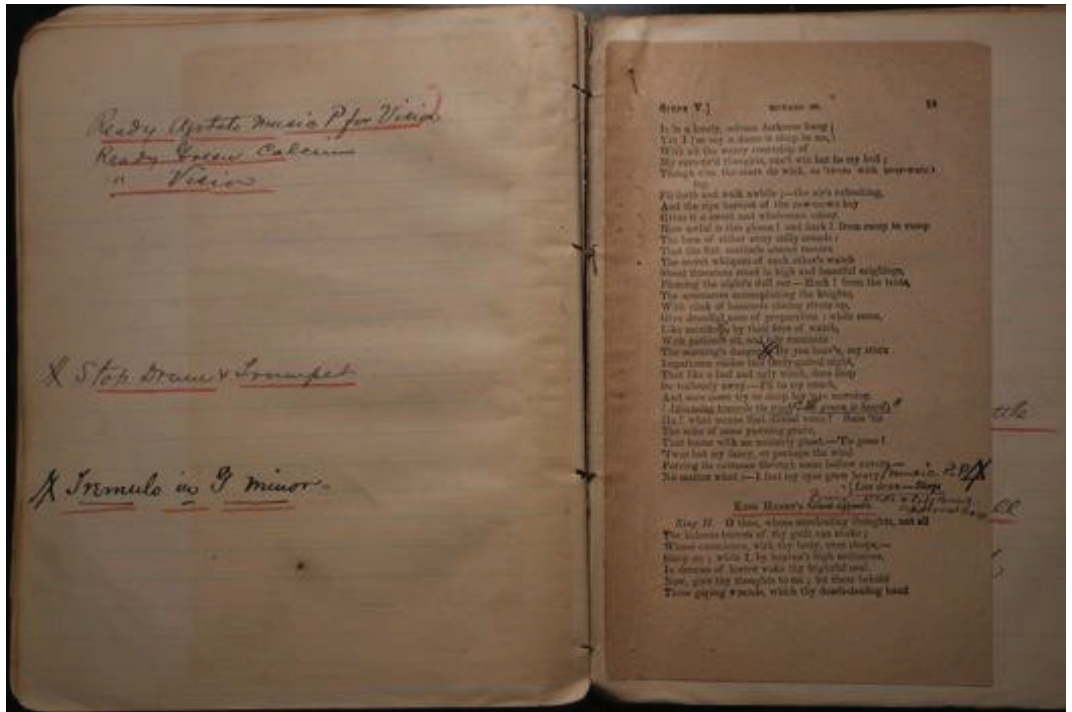 Ready Agitato Music P for Vision
Ready Green Calcium
" Vision
X Stop Drum & Trumpet
X Tremulo in G minor
SCENE V.]
In its lonely, solemn darkness hung;
Yet I (so coy a dame is sleep to me,)
With all the weary courtship of
My care-tir'd thoughts, can't win her to my bed;
Though e'en the stars do wink, as 'twere with over-watching.
I'll forth and walk awhile;—the air's refreshing,
And the ripe harvest of the new-mown hay
Gives it a sweet and wholesome odour.
How awful is this gloom! and hark! from camp to camp
The hum of either army stilly sounds;
That the fixt sentinels almost receive
The secret whispers of each other's watch
Steed threatens steed in high and boastful neighings,
Piercing the night's dull ear.—Hark! from the tents,
The armourers accomplishing the knights,
With clink of hammers closing rivets up,
Give dreadful note of preparation; while some,
Like sacrifices, by their fires of watch,
With patience sit, and inly ruminate
The morning's danger. By yon heav'n, my stern
Impatience chides this tardy-gaited night,
That like a foul and ugly witch, does limp
So tediously away.—I'll to my couch,
And once more try to sleep her into morning.
Ha! what means that dismal voice? Sure 'tis
The echo of some yawning grave,
That teems with an untimely ghost.—'Tis gone!
'Twas but my fancy, or perhaps the wind
Forcing its entrance through some hollow cavern;—
No matter what :—I feel my eyes grow heavy. Music P.P. X
KING HENRY'S Ghost appears.
King H. O thou, whose unrelenting thoughts, not all
The hideous terrors of thy guilt can shake;
Whose conscience, with thy body, ever sleeps,—
Sleep on; while I, by heaven's high ordinance,
In dreams of horror wake thy frightful soul.
Now, give thy thoughts to me; let them behold
Those gaping wounds, which thy death-dealing hand